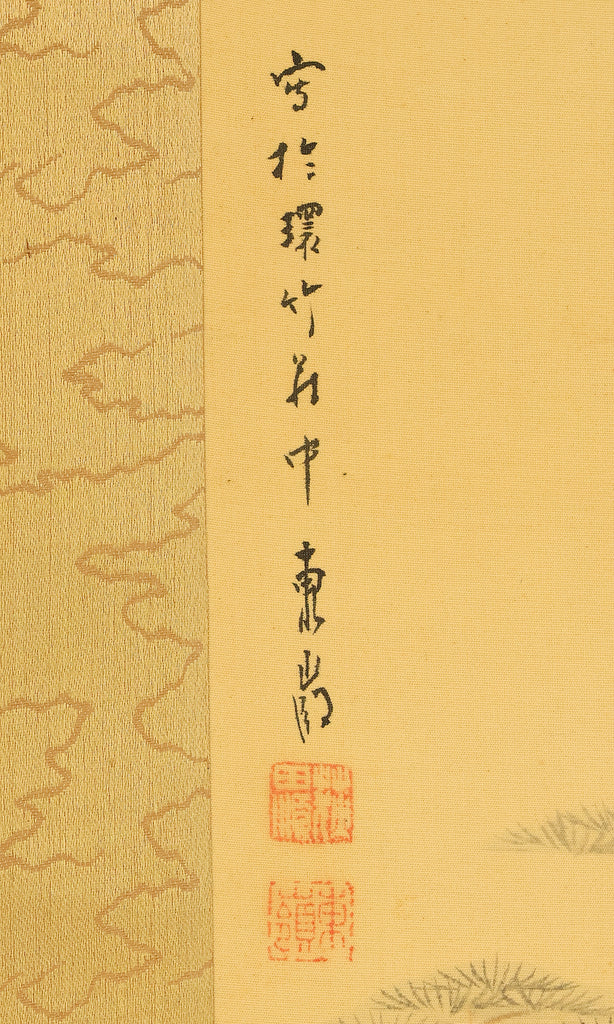 寫於環竹莊中 東嶺
東嶺